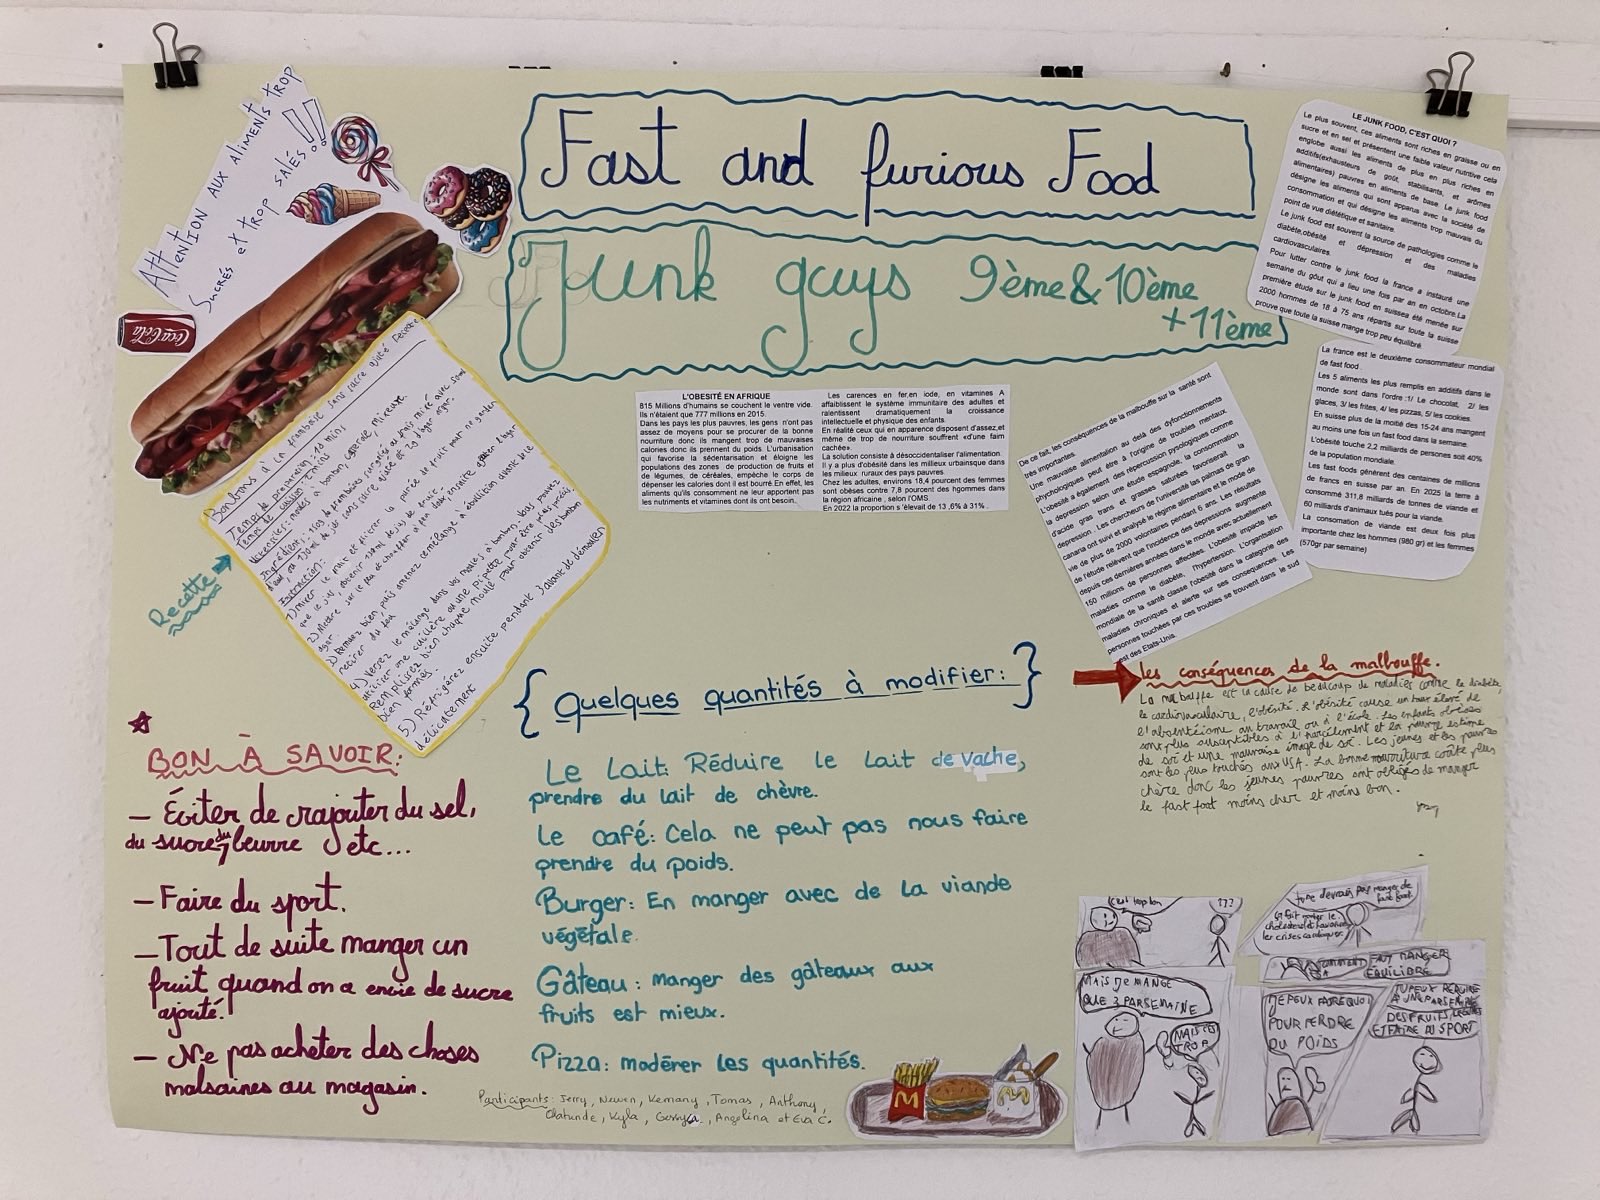 Fast and furious Food
Junk guys 9ème & 10ème
+ 11ème
Attention aux aliments trop
sucrés et trop salés !!
Coca-Cola
LE JUNK FOOD, C'EST QUOI ?
Le plus souvent, ces aliments sont riches en graisse ou en
sucre et en sel et présentent une faible valeur nutritive cela
englobe aussi les aliments de plus en plus riches en
additifs(exhausteurs de goût, stabilisants, et arômes
alimentaires) pauvres en aliments de base. Le junk food
désigne les aliments qui sont apparus avec la société de
consommation et qui désigne les aliments trop mauvais du
point de vue diététique et sanitaire.
Le junk food est souvent la source de pathologies comme le
diabète,obésité et dépression et des maladies
cardiovasculaires
Pour lutter contre le junk food la france a instauré une
semaine du goût qui a lieu une fois par an en octobre.La
première étude sur le junk food en suissea été menée sur
2000 hommes de 18 à 75 ans répartis sur toute la suisse
prouve que toute la suisse mange trop peu équilibré.
La france est le deuxième consommateur mondial
de fast food .
Les 5 aliments les plus remplis en additifs dans le
monde sont dans l'ordre :1/ Le chocolat, 2/ les
glaces, 3/ les frites, 4/ les pizzas, 5/ les cookies.
En suisse plus de la moité des 15-24 ans mangent
au moins une fois un fast food dans la semaine.
L'obésité touche 2,2 milliards de personnes soit 40%
de la population mondiale.
Les fast foods génèrent des centaines de millions
de francs en suisse par an. En 2025 la terre à
consommé 311,8 milliards de tonnes de viande et
60 milliards d'animaux tués pour la viande.
La consomation de viande est deux fois plus
importante chez les hommes (980 gr) et les femmes
(570gr par semaine)
L'OBESITÉ EN AFRIQUE
815 Millions d'humains se couchent le ventre vide.
Ils n'étaient que 777 millions en 2015.
Dans les pays les plus pauvres, les gens n'ont pas
assez de moyens pour se procurer de la bonne
nourriture donc ils mangent trop de mauvaises
calories donc ils prennent du poids. L'urbanisation
qui favorise la sédentarisation et éloigne les
populations des zones de production de fruits et
de légumes, de céréales, empêche le corps de
dépenser les calories dont il est bourré En effet, les
aliments qu'ils consomment ne leur apportent pas
les nutriments et vitamines dont ils ont besoin.
Les carences en fer,en iode, en vitamines A
affaiblissent le système immunitaire des adultes et
ralentissent dramatiquement la croissance
intellectuelle et physique des enfants.
En réalité ceux qui en apparence disposent d'assez,et
même de trop de nourriture souffrent «d'une faim
cachée».
La solution consiste à désoccidentaliser l'alimentation.
Il y a plus d'obésité dans les milieux urbainsque dans
les milieux ruraux des pays pauvres.
Chez les adultes, environs 18,4 pourcent des femmes
sont obèses contre 7,8 pourcent des hgommes dans
la région africaine , selon l'OMS.
En 2022 la proportion s 'élevait de 13 ,6% à 31% .
De ce fait, les conséquences de la malbouffe sur la santé sont
très importantes.
Une mauvaise alimentation au delà des dysfonctionnements
physchologiques peut être à l'origine de troubles mentaux.
L'obésité a également des répercussion pyschologiques comme
la dépression selon une étude espagnole, la consommation
d'acide gras trans et graisses saturées favoriserait la
dépression. Les chercheurs de l'université las palmas de gran
canaria ont suivi et analysé le régime alimentaire et le mode de
vie de plus de 2000 volontaires pendant 6 ans. Les résultats
de l'étude relèvent que l'incidence des depressions augmente
depuis ces dernières années dans le monde avec actuellement
150 millions de personnes affectées. L'obesité impacte les
maladies comme le diabète, l'hypertension. L'organisation
mondiale de la santé classe l'obésité dans la catégorie des
maladies chroniques et alerte sur ses conséquences. Les
personnes touchées par ces troubles se trouvent dans le sud
est des Etats-Unis.
Recette
Bonbons à la framboise sans sucre ajouté
Temps de préparation : 10 min
Temps de cuisson : 7 min
Ustensiles : moules à bonbon, casserole, mixeur.
Ingrédient : 150g de framboises surgelés ou frais mixé avec 50ml
d'eau, ou 150ml de jus sans sucre ajouté et 2g d'agar.
Instruction :
1) mixer le fruit et filtrer la purée de fruit pour ne garder
que le jus, obtenir 150ml de jus de fruit.
2) Mettre sur le feu et chauffer à feu doux ensuite ajouter l'agar
agar.
3) Remuez bien, puis amenez ce mélange à ébullition avant de le
retirer du feu.
4) Versez le mélange dans vos moules à bonbon, vous pouvez
utiliser une cuillère ou une pipette pour être plus précis
Remplissez bien chaque moule pour obtenir des bonbon
bien formés.
5) Réfrigérez ensuite pendant 1h avant de démouler
délicatement
BON À SAVOIR:
— Éviter de rajouter du sel,
du sucre, du beurre etc...
— Faire du sport.
— Tout de suite manger un
fruit quand on a envie de sucre
ajouté.
— Ne pas acheter des choses
malsaines au magasin.
{ Quelques quantités à modifier : }
Le Lait: Réduire le lait de vache,
prendre du lait de chèvre.
Le café: Cela ne peut pas nous faire
prendre du poids.
Burger: En manger avec de la viande
végétale.
Gâteau : manger des gâteaux aux
fruits est mieux.
Pizza: modérer les quantités.
Participants : Jerry, Newen, Kemany, Tomas, Anthony,
Olatunde, Kyla, , Angelina et Eva C.
les conséquences de la malbouffe.
La malbouffe est la cause de beaucoup de maladies comme le diabète,
le cardiovasculaire, l'obésité. L'obésité cause un taux élevé de
l'absentéisme au travail ou à l'école. Les enfants obèses
sont plus susceptibles à l'harcèlement et la pauvre estime
de soi et une mauvaise image de soi. Les jeunes et les pauvres
sont les plus touchés aux USA. La bonne nourriture coûte plus
chère donc les jeunes pauvres sont obligés de manger
le fast foot moins cher et moins bon.
C'est trop bon
???
tu ne devrais pas manger de
fast food
ça fait monter le
cholesterol et favorise
les crises cardiaques
MAIS JE MANGE
QUE 3 PAR SEMAINE
MAIS C'EST
TROP
COMMENT
FAUT MANGER
EQUILIBRE
JE PEUX FAIRE QUOI
POUR PERDRE
DU POIDS
TU PEUX REDUIRE
A UNE PAR SEMAINE
DES FRUITS, LEGUMES
ET FAIRE DU SPORT
M